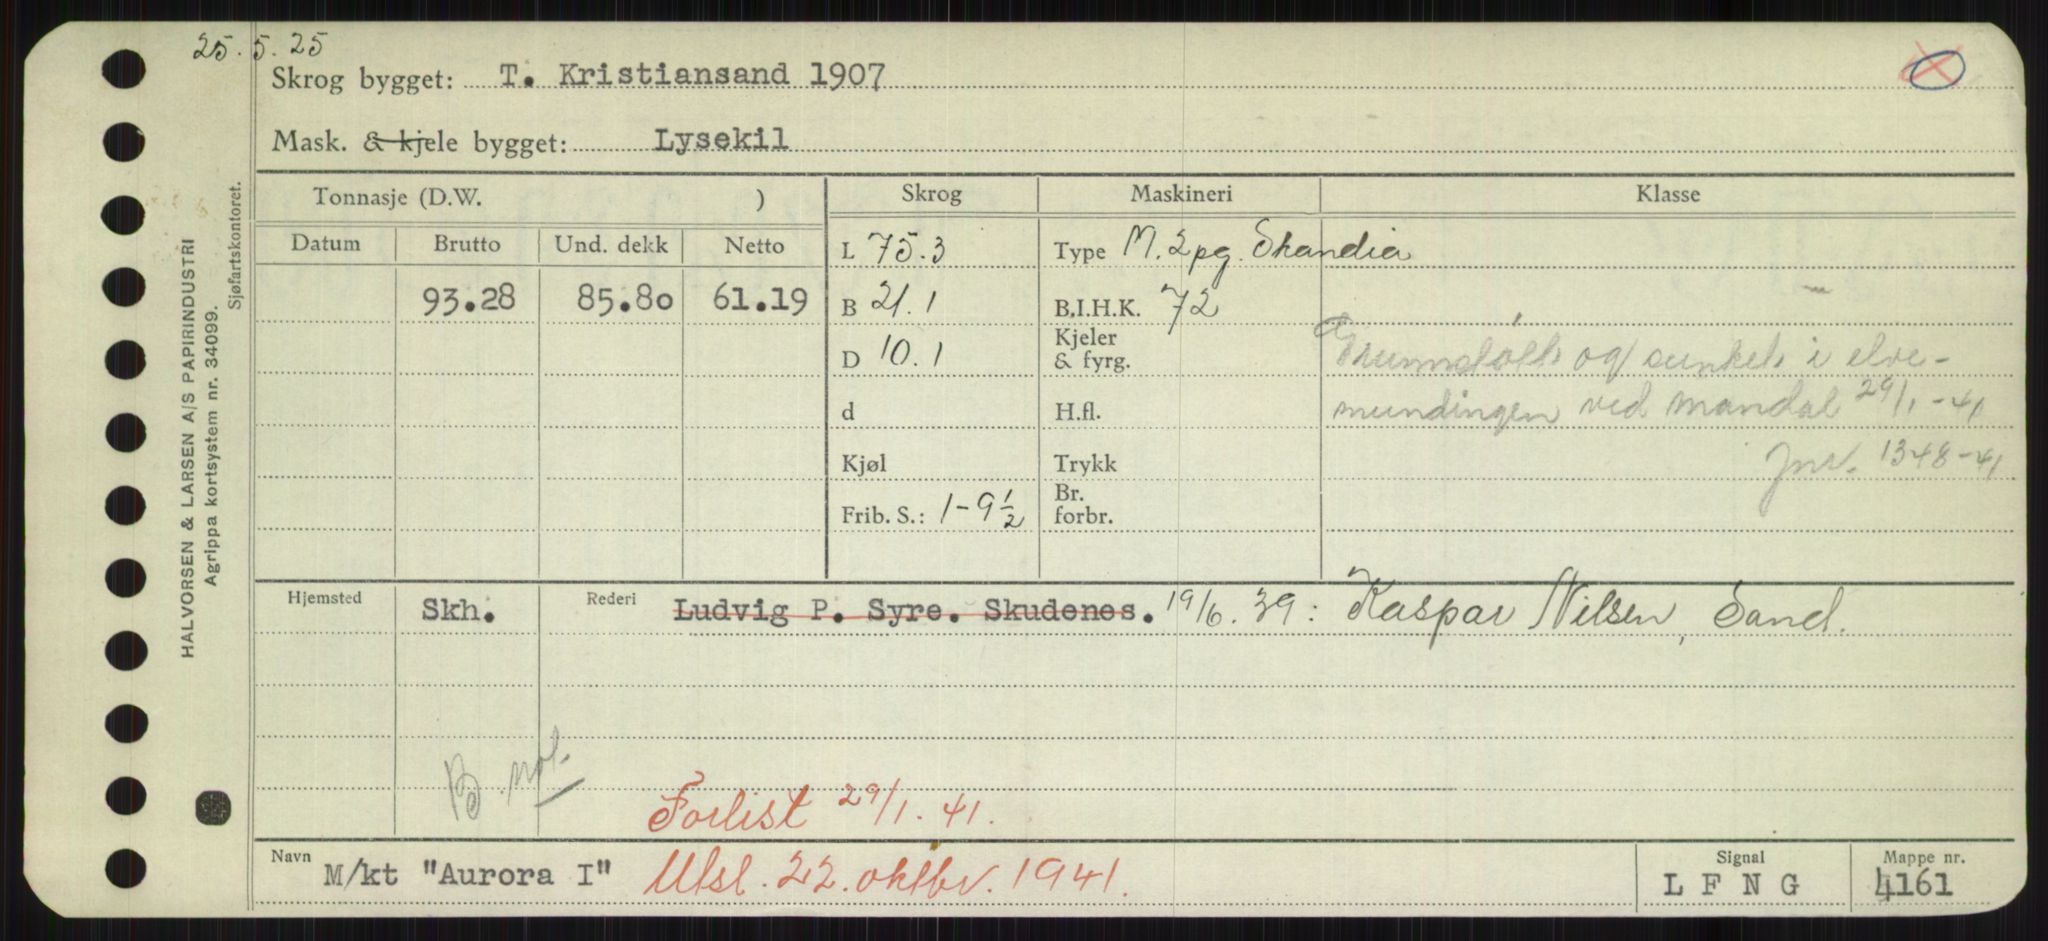 25.5.25
Skrog bygget: T. Kristiansand 1907
Mask. & kjele bygget: Lysekil
Tonnasje (D.W. ) Skrog Maskineri Klasse
Datum Brutto Und. dekk Netto L 75.3 Type M. 2pg. Skandia
93.28 85.80 61.19 B 21.1 B.I.H.K. 72
D 10.1 Kjeler & fyrg. Grunnstøtt og sunket i elve-
d H.fl. mundingen ved Mandal 29/1-41
Kjøl Trykk Jnr. 1348-41
Frib. S.: 1-9½ Br. forbr.
Hjemsted Skh. Rederi Ludvig P. Syre. Skudenes. 19/6.39: Kaspar Nilsen, Sand.
Forlist 29/1.41.
Navn M/kt "Aurora I" Utsl. 22. oktbr. 1941. Signal LFNG Mappe nr. 4161
HALVORSEN & LARSEN A/S PAPIRINDUSTRI
Agrippa kortsystem nr. 34099.
Sjøfartskontoret.